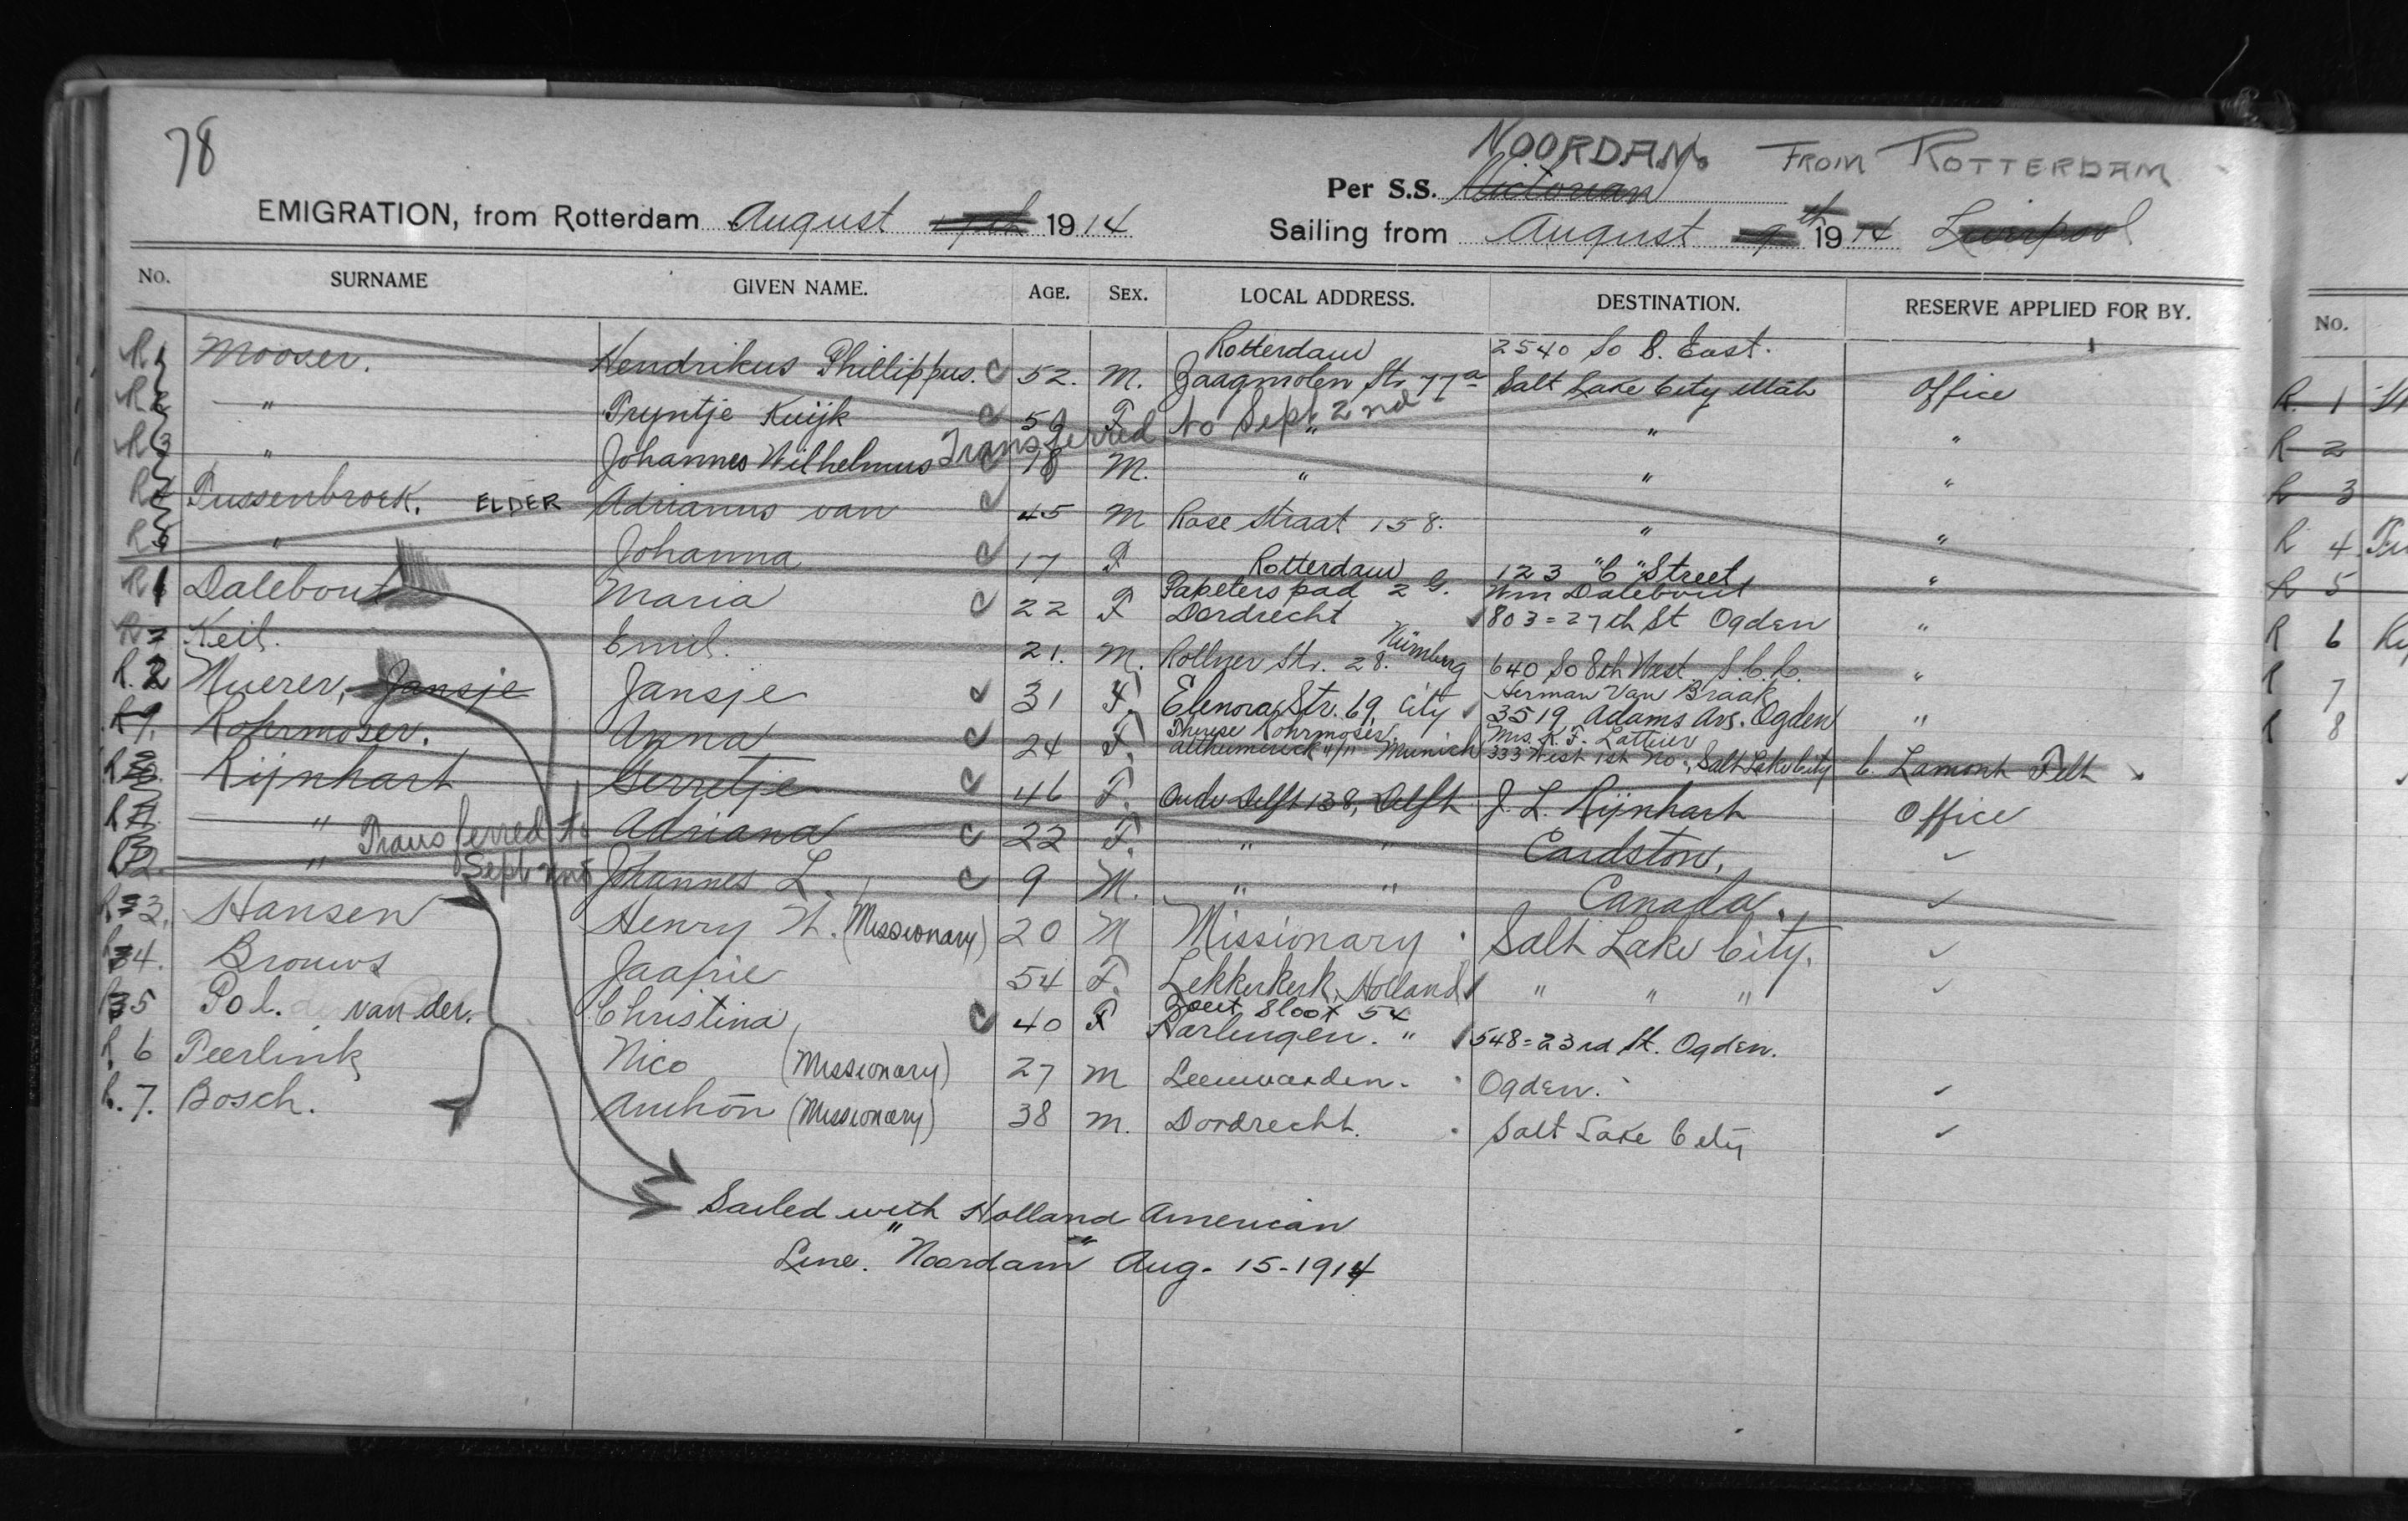 78
NOORDAM. FROM ROTTERDAM
Per S.S. Victorian
EMIGRATION, from Rotterdam August 1914
Sailing from August 9th 1914 Liverpool
No. SURNAME GIVEN NAME. AGE. SEX. LOCAL ADDRESS. DESTINATION. RESERVE APPLIED FOR BY. No.
Rotterdam 2540 So 8. East.
R 1 Mooser. Hendrikus Phillippus. c 52. M. Zaagmolen Str. 77a Salt Lake City Utah Office
R 2 " Pryntje Kuijk c 59 F " " "
Transferred to Sept 2nd
R 3 " Johannes Wilhelmus c 18 M. " " "
R 4 Pussenbroek. ELDER Adrianus van c 45 M Rose Straat 158. " "
R 5 " Johanna c 17 F Rotterdam 123 "C" Street "
Papeterspad 2 G. Wm Dalebout
R 1 Dalebout Maria c 22 F Dordrecht 803 = 27th St Ogden "
R 7 Keil. Emil. 21. M. Rollner Str. 28. Nürnberg 640 So 8th West. S.L.C. "
Herman Van Braak
R. 2 Muerer, Jansje Jansje c 31 F. Elenora Str. 69, City 3519 Adams Ave. Ogden "
Therese Rohrmoser. Mrs. K. F. Latteier
R 9. Rohrmoser. Anna c 24 F. Munich 333 West 1st No., Salt Lake City C. Lamont Felt
R Rijnhart Gerretje c 46 F. Oude Delft 138, Delft J. L. Rijnhart Office
R " Adriana c 22 F. " " Cardston, ✓
Transferred to Sept 2nd
R " Johannes L. c 9 M. " " Canada. ✓
R 3. Hansen Henry N. (Missionary) 20 M Missionary Salt Lake City. ✓
R 4. Brouws Jaapie 54 F. Lekkerkerk, Holland " " " ✓
Zout Sloot 54
R 5 Pol. van der. Christina, c 40 F Harlingen. " 548 = 23rd St. Ogden.
R. 6 Peerlink Nico (Missionary) 27 M Leeuwarden. Ogden. ✓
R. 7. Bosch. Anthon (Missionary) 38 M. Dordrecht. Salt Lake City ✓
Sailed with Holland American
Line. "Noordam" Aug. 15-1914
R 1
R 2
R 3
R 4
R 5
R 6
R 7
R 8